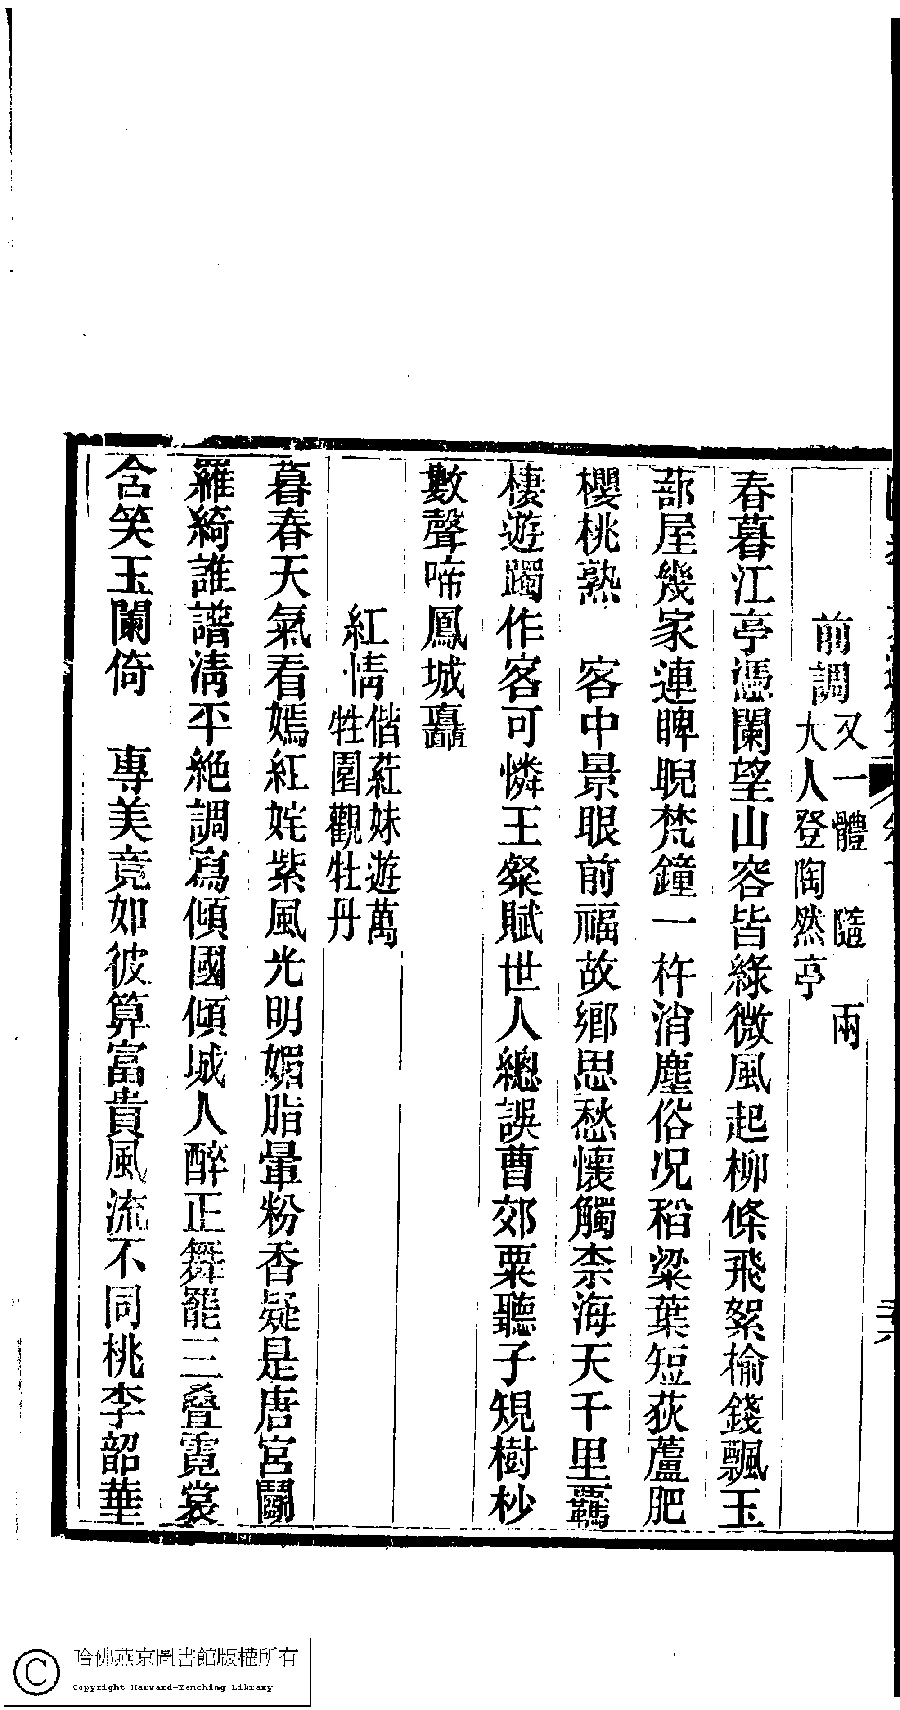 前調又一體　隨　兩
大人登陶然亭
春暮江亭憑闌望山容皆綠微風起柳條飛絮榆錢飄玉
蔀屋幾家連睥睨梵鐘一杵消塵俗况稻粱葉短荻蘆肥
櫻桃熟　客中景眼前福故鄉思愁懷觸柰海天千里羈
棲遊躅作客可憐王粲賦世人總誤曹郊粟聽子規樹杪
數聲啼鳳城矗
紅情偕葒妹遊萬
牲園觀牡丹
暮春天氣看嫣紅姹紫風光明媚脂暈粉香疑是唐宮鬭
羅綺誰譜淸平絶調寫傾國傾城人醉正舞罷三疊霓裳
含笑玉闌倚　專美竟如彼算富貴風流不同桃李韶華
哈佛燕京圖書館版權所有
Copyright Harvard-Yenching Library